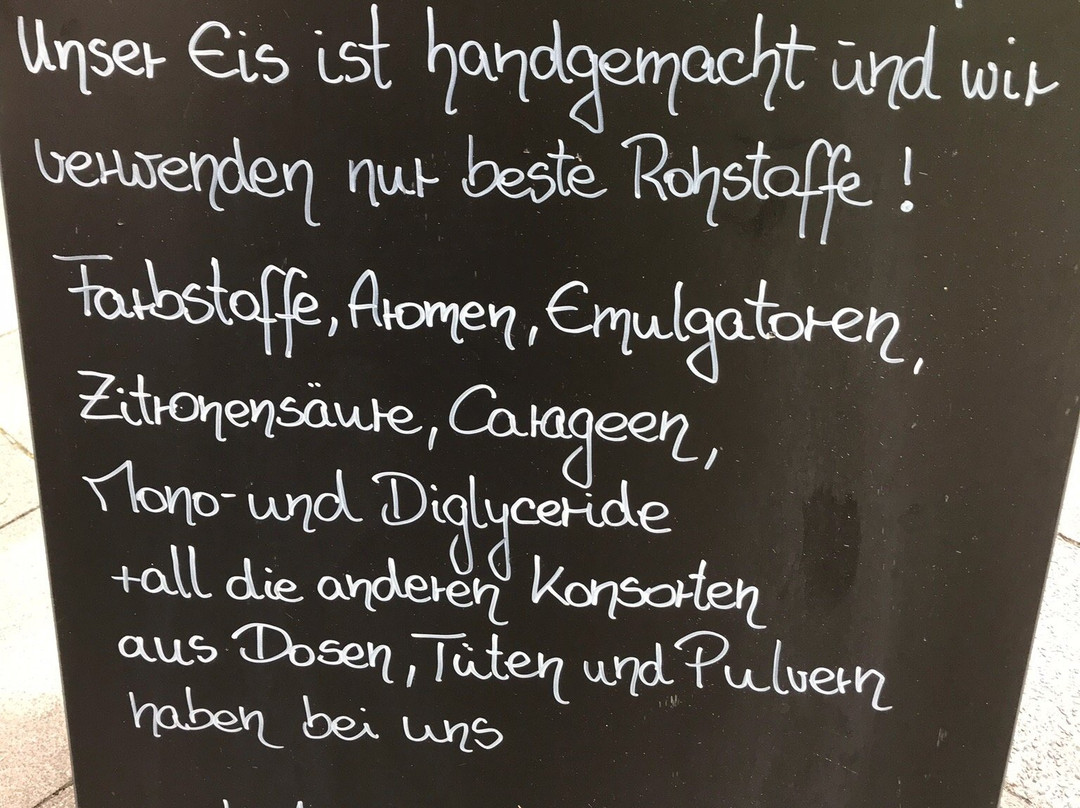 Unser Eis ist handgemacht und wir
verwenden nur beste Rohstoffe !
Farbstoffe, Aromen, Emulgatoren,
Zitronensäure, Carageen,
Mono- und Diglyceride
+all die anderen Konsorten
aus Dosen, Tüten und Pulvern
haben bei uns